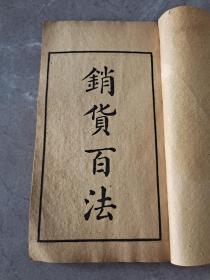 銷貨百法